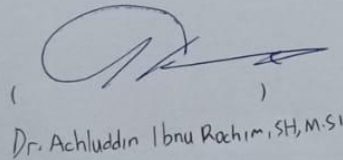 (                    )
Dr. Achluddin Ibnu Rochim, SH, M.Si